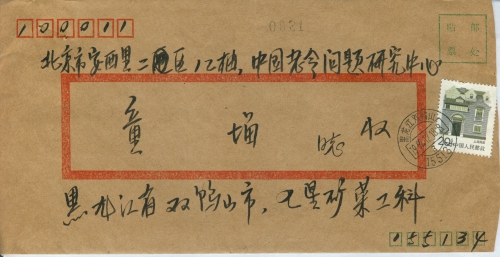 100011
0621
贴 邮
票 处
北京市安西里二区12栋,中国老令问题研究中心
童 收
黑龙江省双鸭山市,七星矿 工科
20分
中国人民邮政
155134